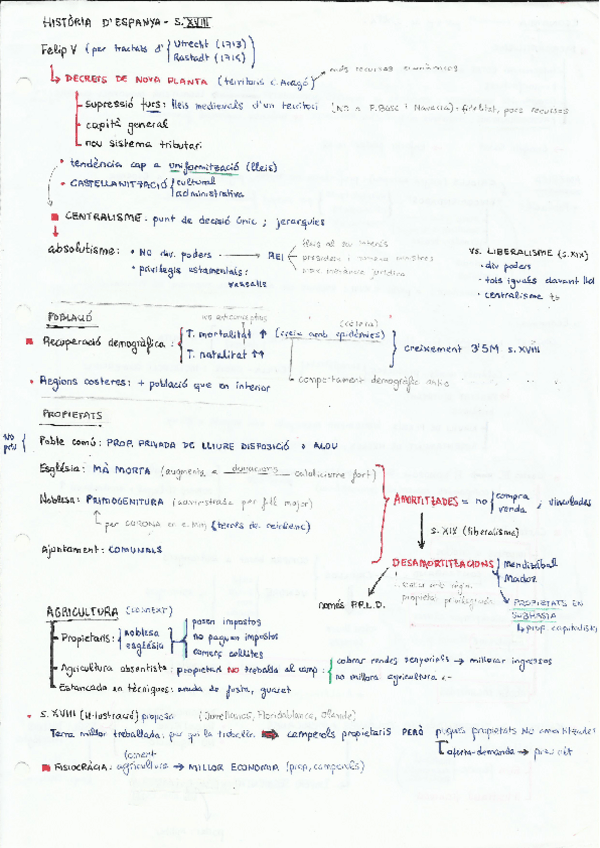 HISTÒRIA D'ESPANYA - S. XVIII
Felip V (per tractats d' Utrecht (1713)
Rastadt (1714)
més recursos econòmics
DECRETS DE NOVA PLANTA (territoris C. Aragó)
- supressió furs: lleis medievals d'un territori (NO a P. Basc i Navarra) - fidelitat, pocs recursos
- capità general
- nou sistema tributari
• tendència cap a uniformització (lleis)
• CASTELLANITZACIÓ cultural
administrativa
CENTRALISME. punt de decisió únic; jerarquies
absolutisme: • NO div. poders → REI
• privilegis estamentals:
vassalls
lleis al seu interès
vs. LIBERALISME (s. XIX)
• div poders
• tots iguals davant llei
• centralisme
POBLACIÓ
Recuperació demogràfica: T. mortalitat ↑ (creix amb epidèmies)
(còlera)
T. natalitat ↑↑
creixement 3'5M s. XVIII
• Regions costeres: + població que en interior
comportament demogràfic antic
PROPIETATS
Poble comú: PROP. PRIVADA DE LLIURE DISPOSICIÓ → ALOU
Església: MÀ MORTA (augmenta donacions catolicisme fort)
Noblesa: PRIMOGENITURA (administrada per fill major)
per CORONA en e. Mitj (terres de reialenc)
Ajuntament: COMUNALS
AMORTITZADES = no compra
venda ; vinculades
s. XIX (liberalisme)
DESAMORTITZACIONS Mendizábal
Madoz
només P.P.L.D.
propietat privilegiada
PROPIETATS EN
SUBHASTA
prop. capitalista
AGRICULTURA (context)
- Propietaris: noblesa
església
posen impostos
no paguen impostos
comerç collites
- Agricultura absentista: propietari NO treballa al camp: cobrar rendes senyorials → millorar ingressos
no millora agricultura
- Estancada en tècniques: arada de fusta, guaret
• S. XVIII (Il·lustració) proposa (Jovellanos, Floridablanca, Olavide)
Terra millor treballada: per qui la treballa. → camperols propietaris PERÒ poques propietats NO amortitzades
oferta-demanda → preu alt
FISIOCRÀCIA: agricultura → MILLOR ECONOMIA (prop. camperols)